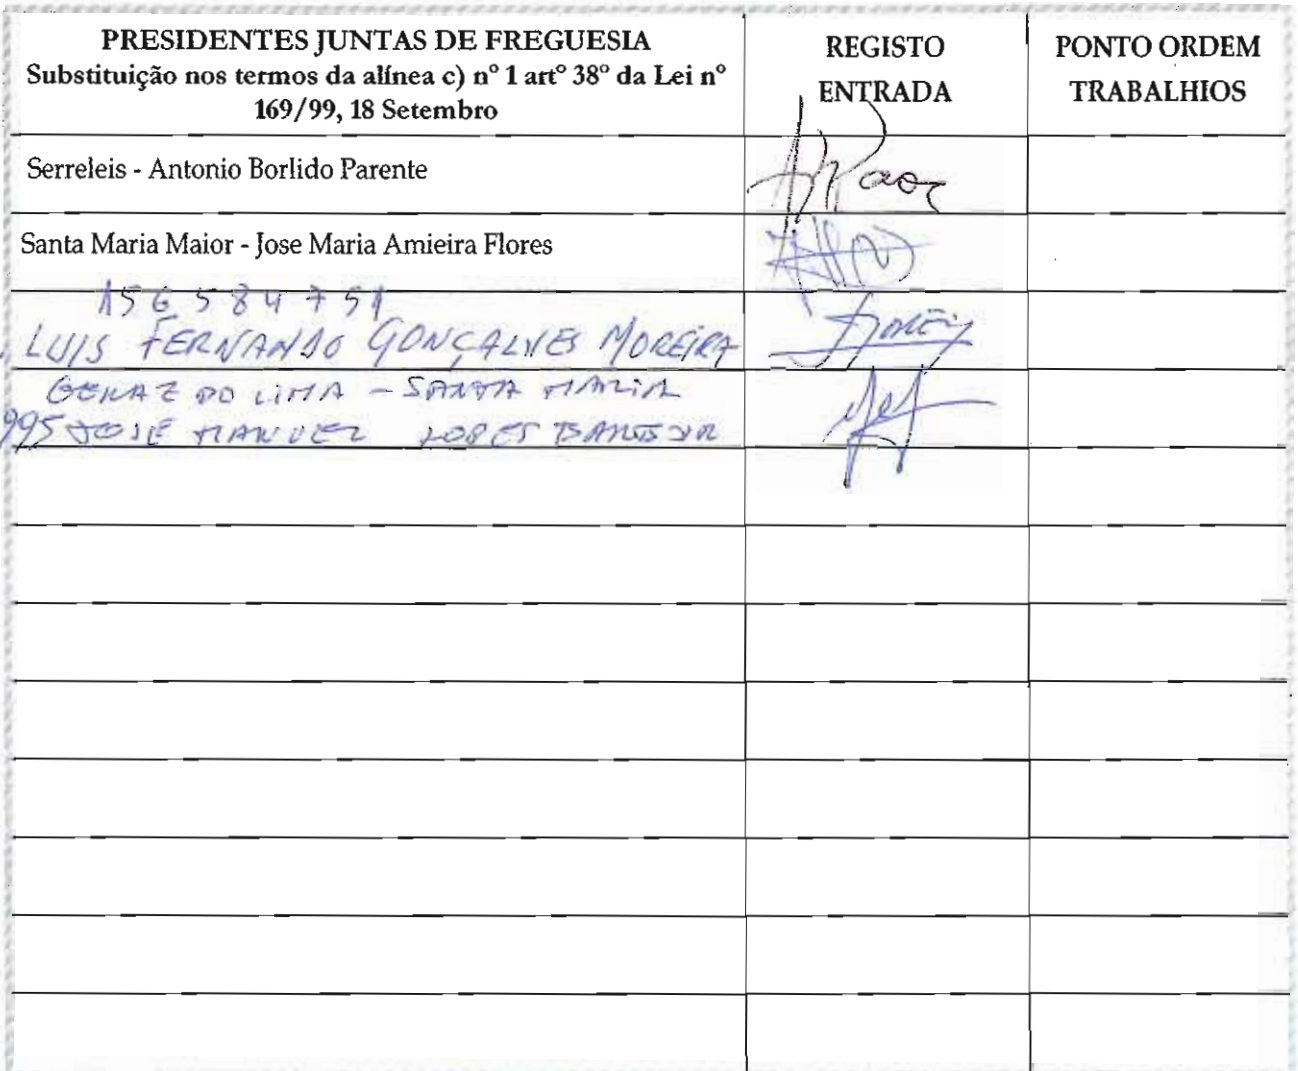 PRESIDENTES JUNTAS DE FREGUESIA
Substituição nos termos da alínea c) nº 1 artº 38º da Lei nº
169/99, 18 Setembro
REGISTO
ENTRADA
PONTO ORDEM
TRABALHIOS
Serreleis - Antonio Borlido Parente
Santa Maria Maior - Jose Maria Amieira Flores
156584751
LUIS FERNANDO GONÇALVES MOREIRA
GERAZ DO LIMA - SANTA MARIA
995 JOSE MANUEL LOPES